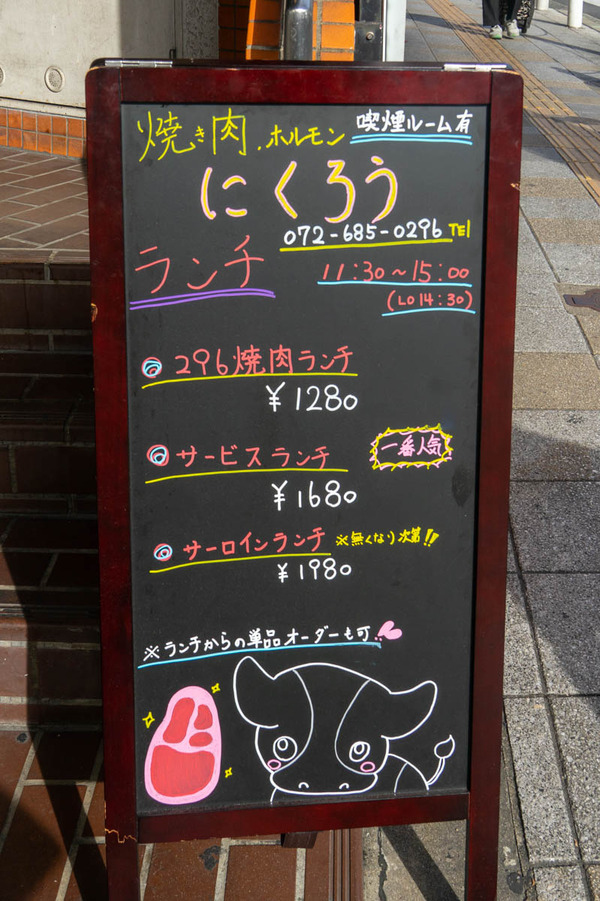 焼き肉.ホルモン 喫煙ルーム有
にくろう
072-685-0296 TEl
ランチ 11:30~15:00
(LO 14:30)
296焼肉ランチ
¥1280
サービスランチ 一番人気
¥1680
サーロインランチ ※無くなり次第!!
¥1980
※ランチからの単品オーダーも可..